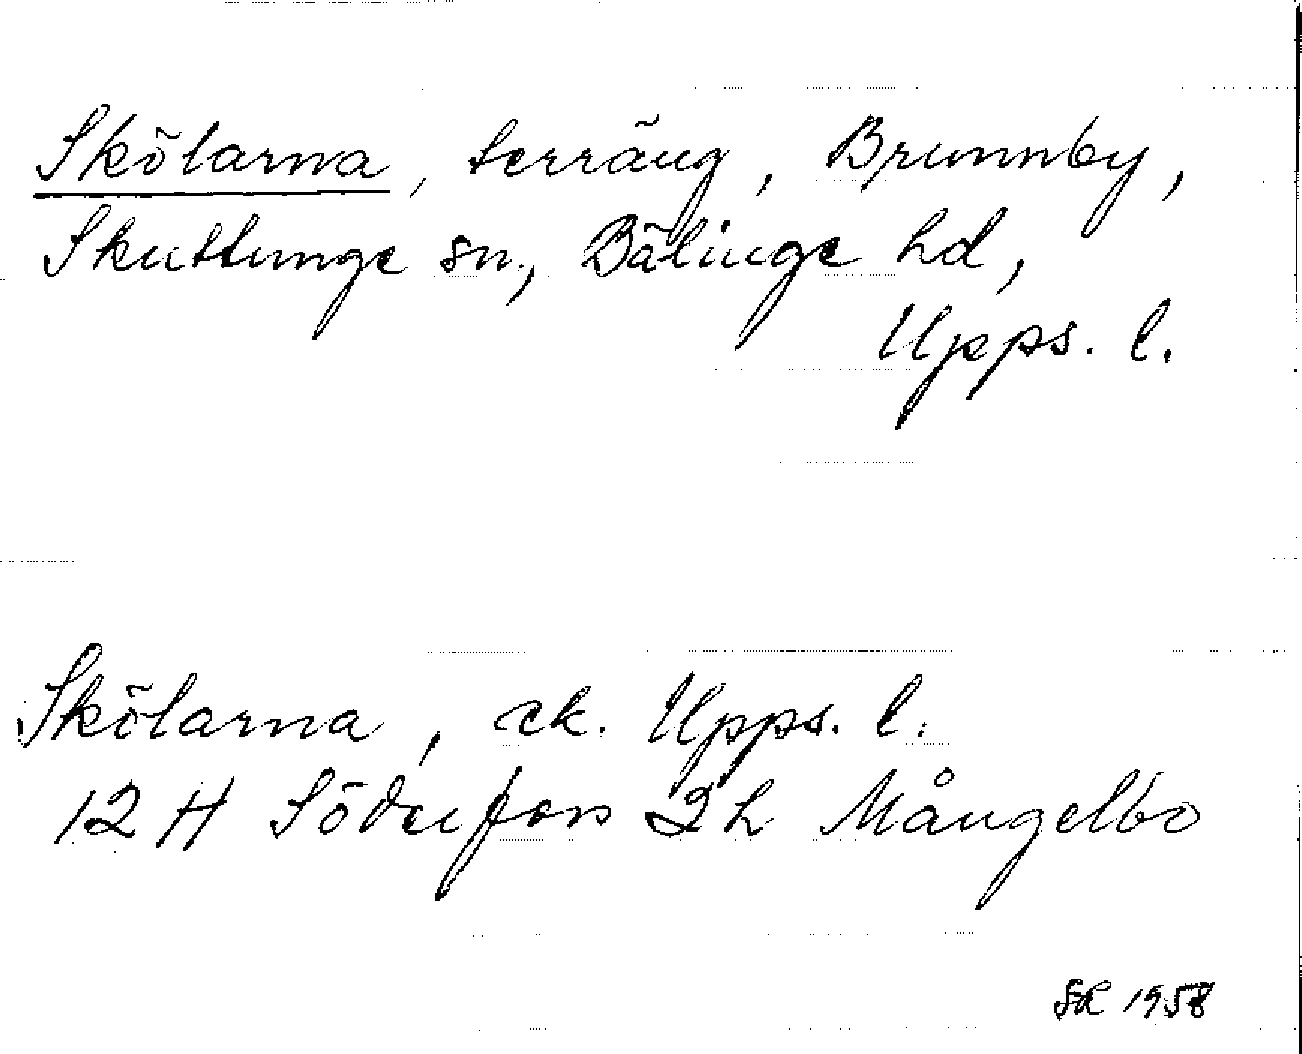 Skölarna, terräng, Brunnby,
Skuttunge sn., Bälinge hd,
Upps. l.
Skölarna, ek. Upps. l.
12 H Söderfors 2h Mångelbo
SR 1958